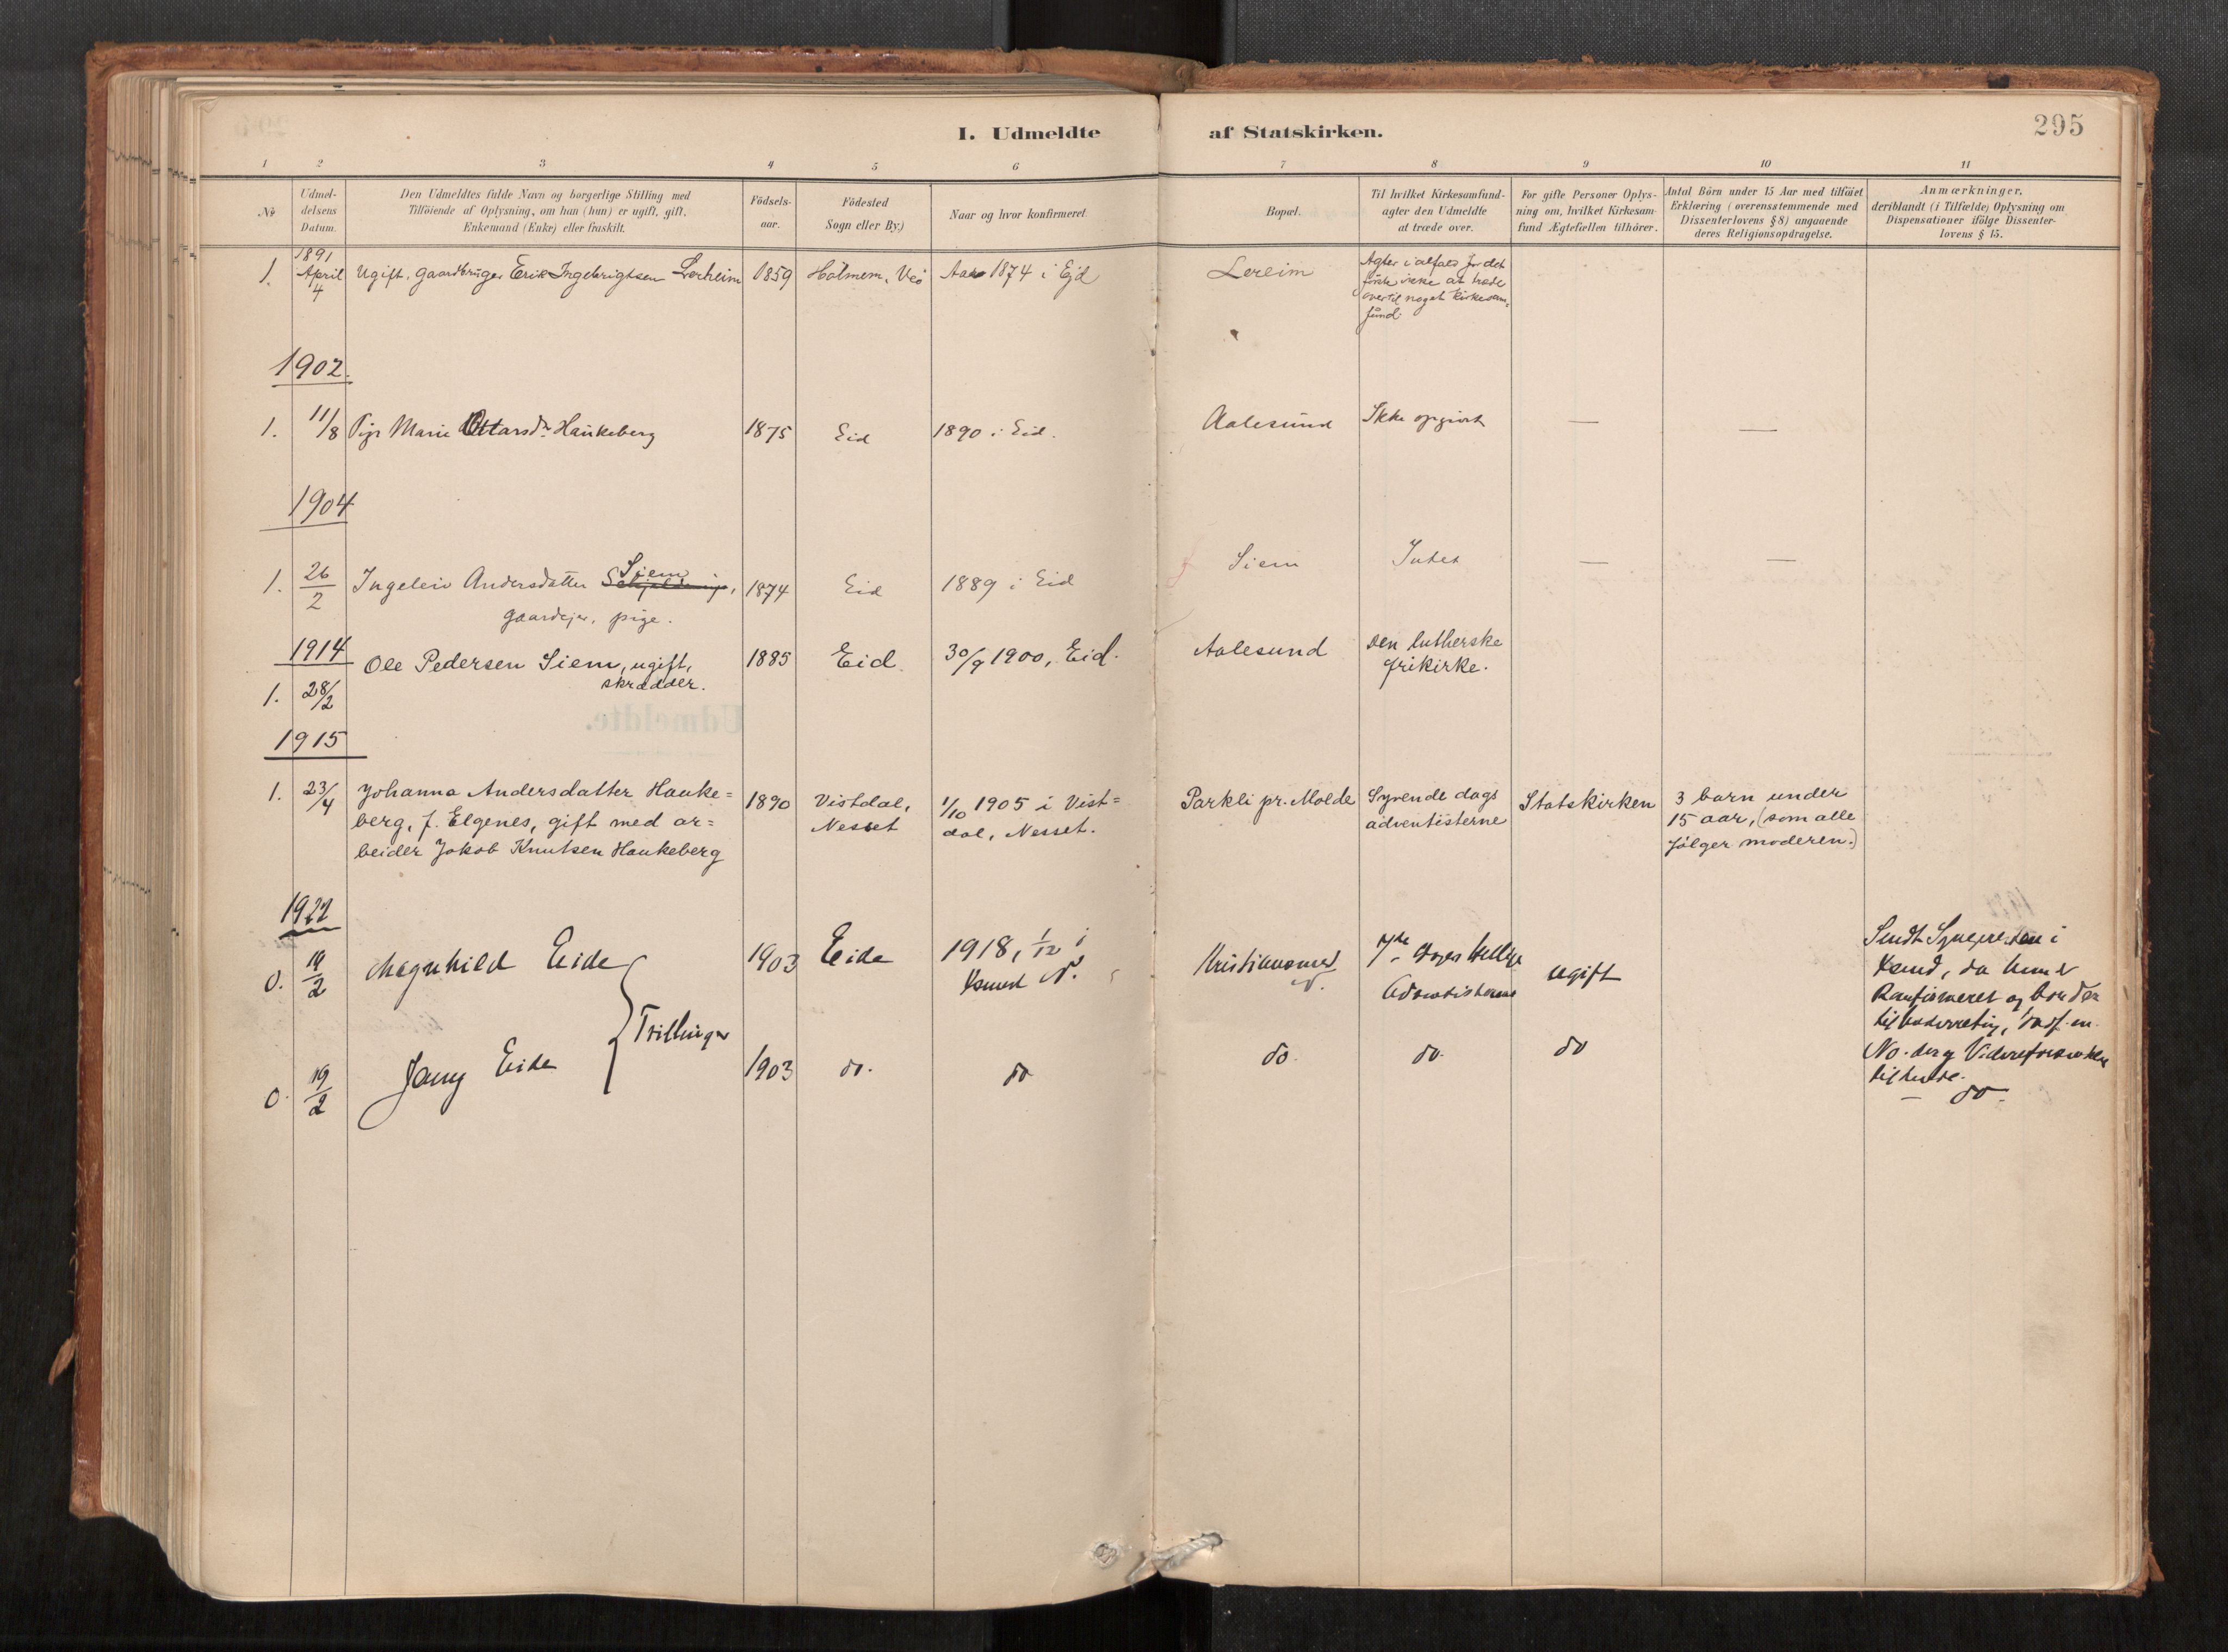 I. Udmeldte af Statskirken.
295
1 2 3 4 5 6 7 8 9 10 11
No
Udmel-
delsens
Datum.
Den Udmeldtes fulde Navn og borgerlige Stilling med
Tilföiende af Oplysning, om han (hun) er ugift, gift,
Enkemand (Enke) eller fraskilt.
Födsels-
aar.
Födested
Sogn eller By.)
Naar og hvor konfirmeret.
Bopæl.
Til hvilket Kirkesamfund-
agter den Udmeldte
at træde over.
For gifte Personer Oplys-
ning om, hvilket Kirkesam-
fund Ægtefællen tilhörer.
Antal Börn under 15 Aar med tilföiet
Erklæring (overensstemmende med
Dissenterlovens § 8) angaaende
deres Religionsopdragelse.
Anmærkninger,
deriblandt (i Tilfælde) Oplysning om
Dispensationer ifölge Dissenter-
lovens § 15.
1891
1. April 4
Ugift, gaardbruger Erik Ingebrigtsen Lerheim
1859
Holmem, Veö
Aar 1874 i Ejd
Lereim
Agter i alfald for det
første ikke at træde
over til noget Kirkesam-
fund.
1902.
1. 11/8
Pige Marie Ottarsdr Haukeberg
1875
Eid
1890 i Eid.
Aalesund
Ikke opgivet
—
—
1904
1. 26/2
Ingeleiv Andersdatter Siem,
gaardejer, pige.
1874
Eid
1889 i Eid
Siem
Intet
—
—
1914
1. 28/2
Ole Pedersen Siem, ugift,
skrædder.
1885
Eid.
30/9 1900, Eid.
Aalesund
Den lutherske
frikirke.
1915
1. 23/4
Johanna Andersdatter Hauke=
berg, f. Elgenes, gift med ar=
beider Jakob Knutsen Haukeberg
1890
Vistdal,
Nesset
1/10 1905 i Vist=
dal, Nesset.
Parkli pr. Molde
Syvende dags
adventisterne
Statskirken
3 barn under
15 aar, (som alle
følger moderen.)
1922
0. 19/2
Magnhild Eide
1903
Eide
1918, 1/12 i
Ksund N.
Kristiansund
N.
7de Dages
Adventisterne
ugift
Sendt i
Ksund, da hun er
og bor der
Trillinger
0. 19/2
Jenny Eide
1903
do.
do
do.
do.
do
do.